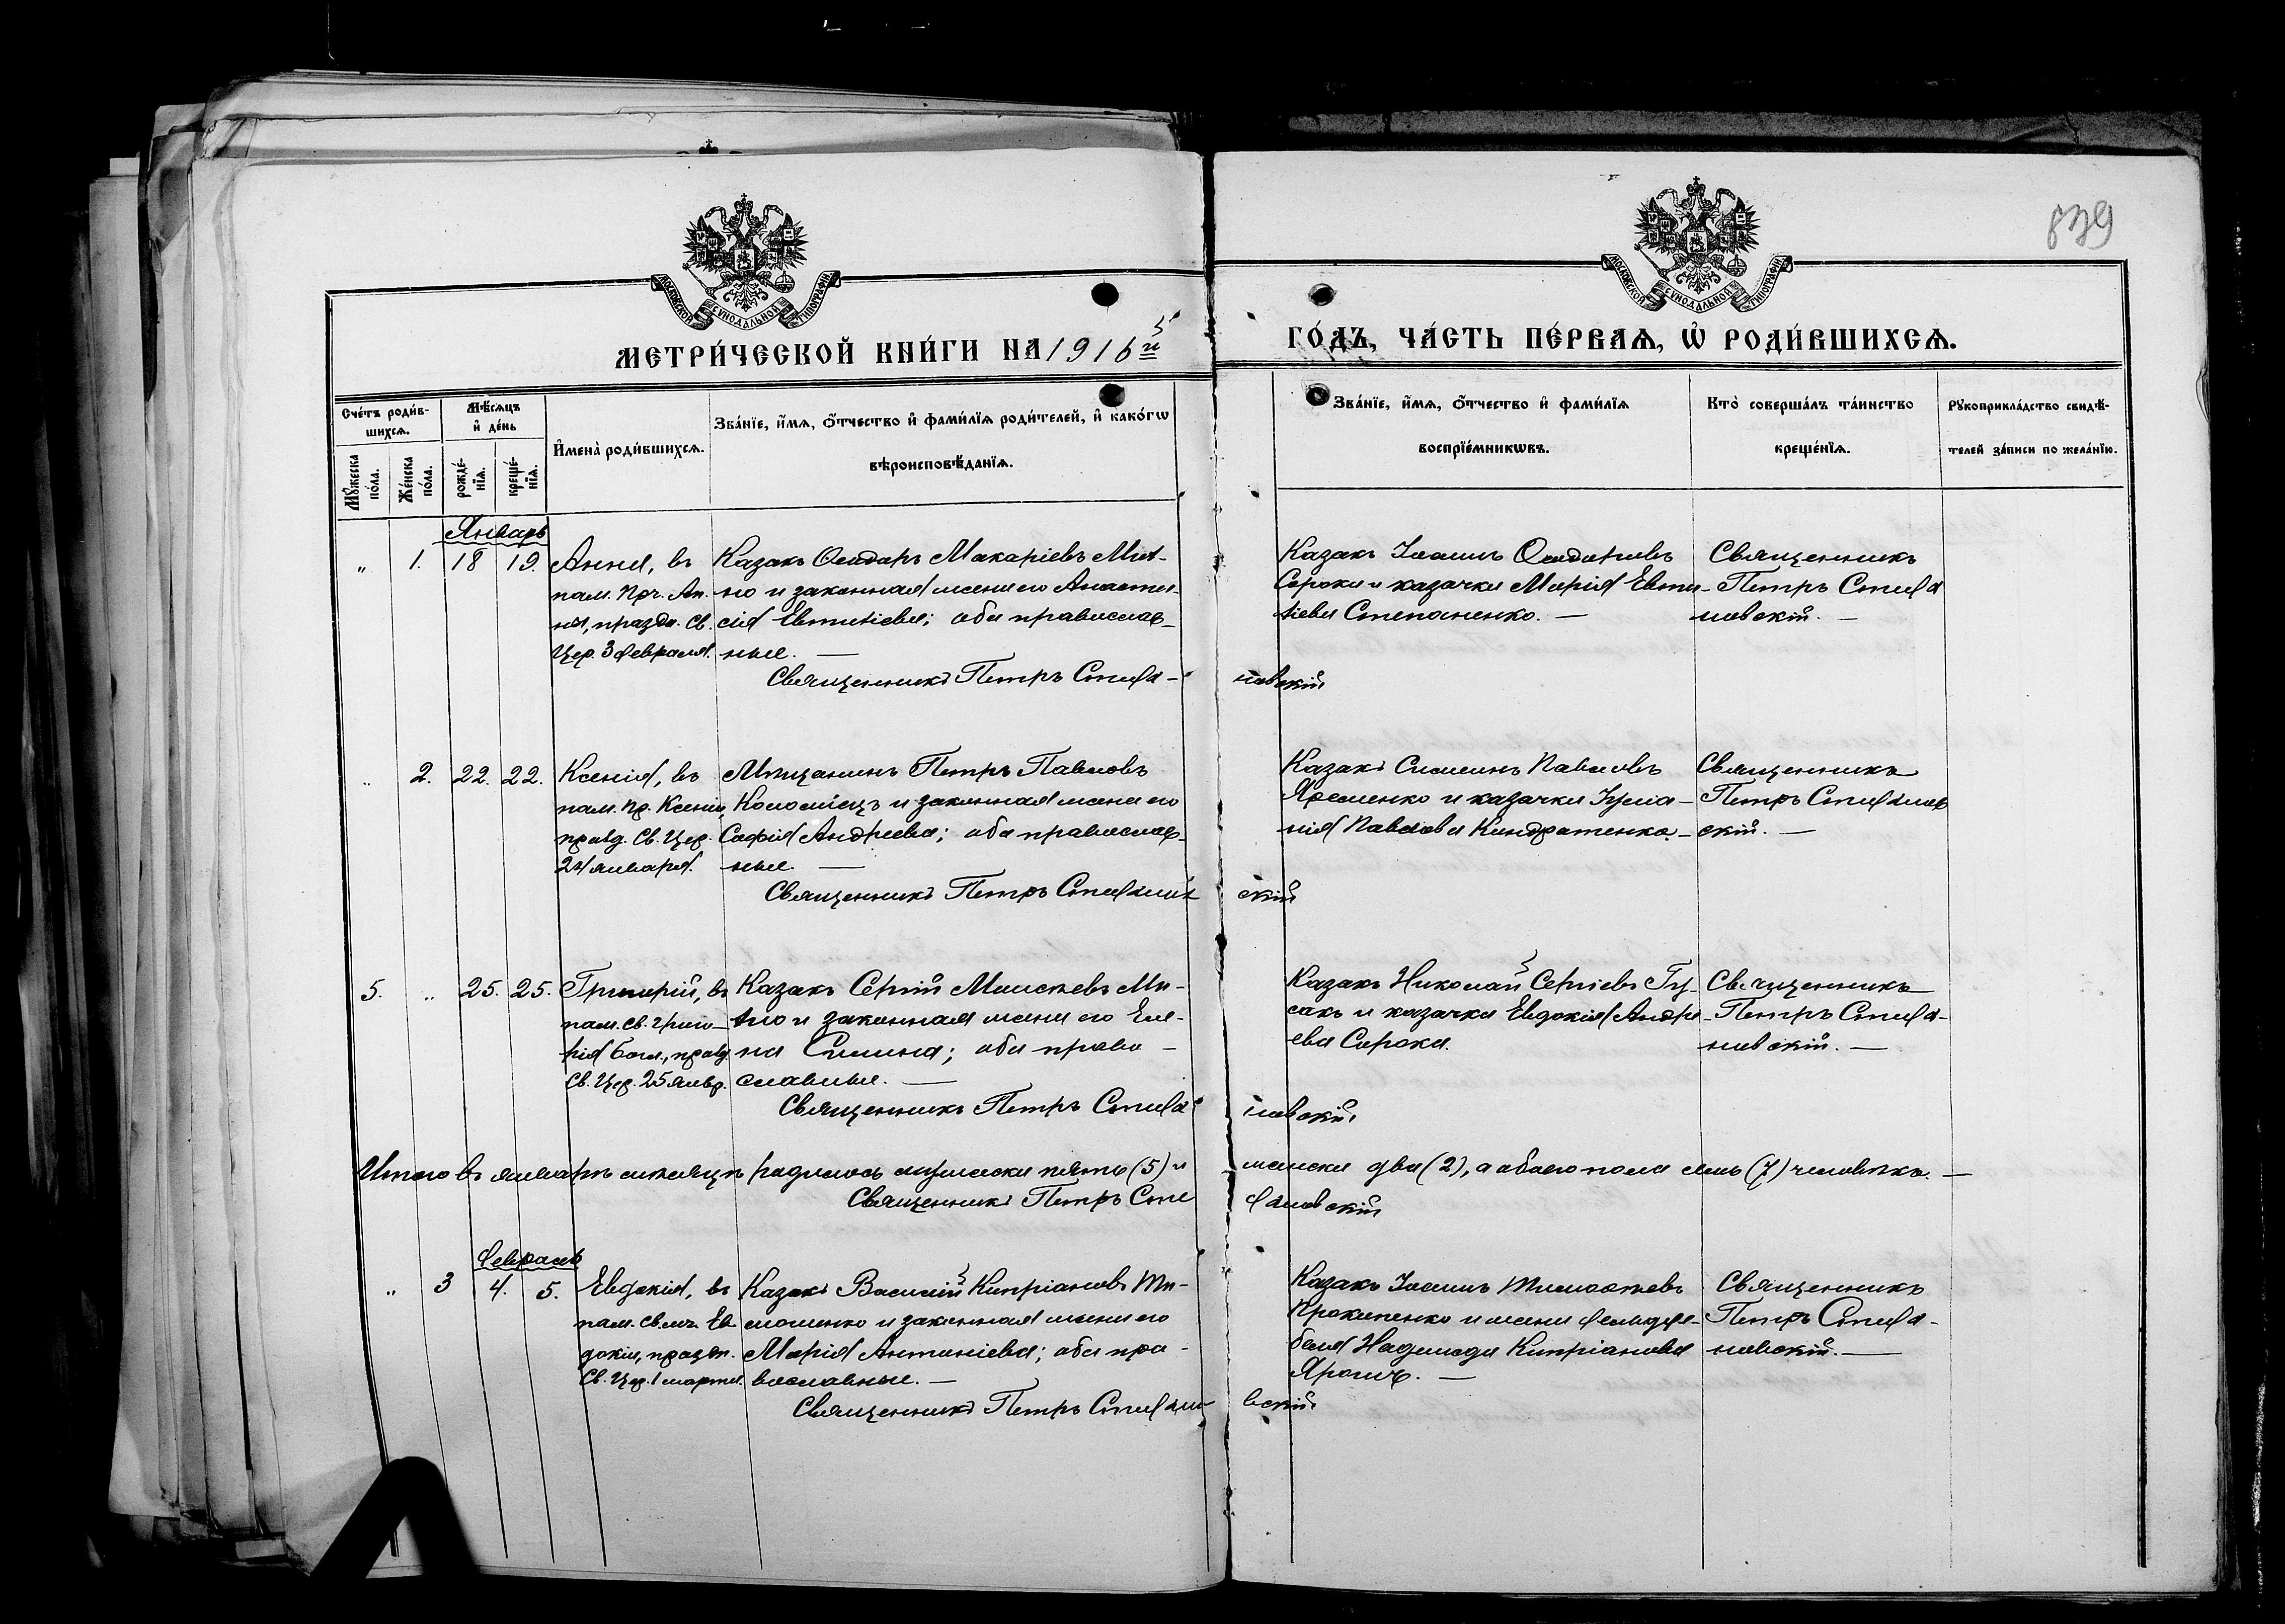 839
МОСКОВСКОЙ СѴНОДАЛЬНОЙ ТИПОГРАФІИ
МОСКОВСКОЙ СѴНОДАЛЬНОЙ ТИПОГРАФІИ
МЕТРИ́ЧЕСКОЙ КНИ́ГИ НА 1916й
ГО́ДЪ, ЧА́СТЬ ПЕ́РВАѦ, Ѡ҆ РОДИ́ВШИХСѦ.
Сче́тъ роди́в-
шихсѧ.
Мѣ́сѧцъ
и҆ де́нь
Мꙋ́жеска
по́ла.
Же́нска
по́ла.
рожде́-
нїѧ.
креще́-
нїѧ.
И҆мена̀ роди́вшихсѧ.
Зва́нїе, и҆́мѧ, ѻ҆́тчество и҆ фами́лїѧ роди́телей, и҆ како́гѡ
вѣроисповѣ́данїѧ.
Зва́нїе, и҆́мѧ, ѻ҆́тчество и҆ фами́лїѧ
воспрїе́мникѡвъ.
Кто̀ соверша́лъ та́инство
креще́нїѧ.
Рꙋкоприкла́дство свидѣ́-
телей за́писи по жела́нїю.
Январь
" 1. 18 19.
Анна, въ
пам. Прч. Ан-
ны, праздн. Св.
Цер. 3 февраля.
Казакъ Макаріевъ
но и законная жена его Анаста-
сія Евтихіева; оба православ-
ные. —
Священникъ Петръ Стефа-
новскій
Казакъ Іоаннъ
Сорока и казачка Марія Евти-
хіева Степаненко. —
Священникъ
Петръ Стефа
новскій. —
" 2. 22. 22.
Ксенія, въ
пам. Пр. Ксеніи,
празд. Св. Цер.
24 января.
Мѣщанинъ Петръ Павловъ
Коломіецъ и законная жена его
Софія Андреева; оба православ-
ные. —
Священникъ Петръ Стефанов
скій
Казакъ Симеонъ Павловъ
Яременко и казачка Іуліа-
нія Павлова Кондратенко. -
Священникъ
Петръ Стефанов
скій. —
5. " 25. 25.
Григорій, въ
пам. св. Григо-
рія Богсл., празд.
Св. Цер. 25 янвр.
Казакъ Сергій Моисеевъ
и законная жена его Еле-
на ; оба право-
славные. —
Священникъ Петръ Стефа
новскій
Казакъ Николай Сергіевъ Гу-
сакъ и казачка Евдокія Андре-
ева Сорока.
Священникъ
Петръ Стефа-
новскій. —
Итого въ январѣ мѣсяцѣ родилось мужеска пять (5) и женска два (2), а обоего пола семь (7) человѣкъ. —
Священникъ Петръ Сте
фановскій
Февраль
" 3 4. 5.
Евдокія, въ
пам. св. мч. Ев
докіи, праздн.
Св. Цер. 1 марта.
Казакъ Василій Кипріановъ Ти-
мошенко и законная жена его
Марія Антоніева; оба пра-
вославные. —
Священникъ Петръ Стефано
вскій
Казакъ Іоаннъ Тимофеевъ
Прокопенко и жена фельдфе-
беля Надежда Кипріанова
Священникъ
Петръ Стефа-
новскій. —